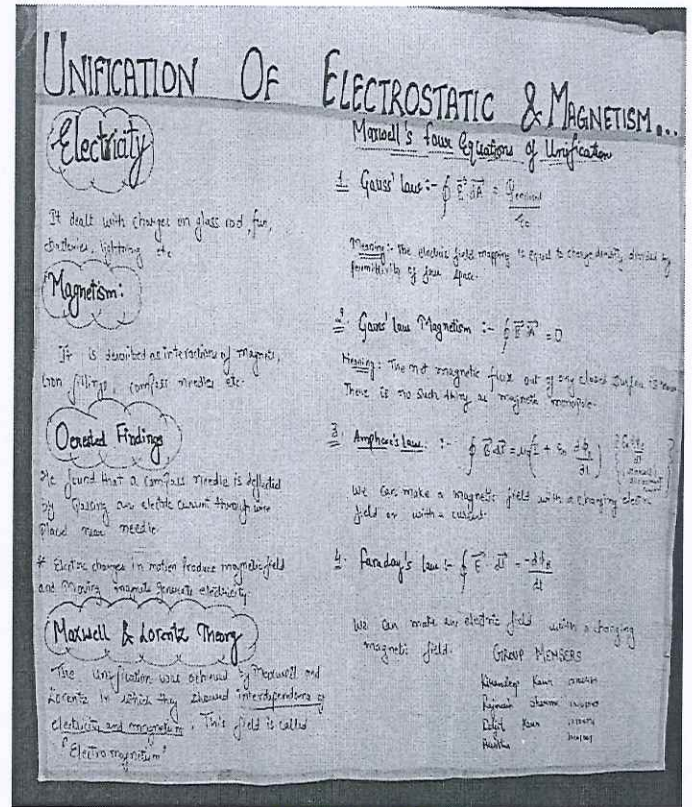 UNIFICATION OF ELECTROSTATIC & MAGNETISM...
Electricity
It dealt with charges on glass rod, fur,
batteries, lightning etc
Magnetism:
It is described as interactions of magnets,
iron fillings, compass needles etc.
Oersted Findings
He found that a compass needle is deflected
by passing an electric current through wire
placed near needle.
* Electric charges in motion produce magnetic field
and moving magnets generate electricity.
Maxwell & Lorentz Theory
The unification was achieved by Maxwell and
Lorentz in which they showed interdependence of
electricity and magnetism. This field is called
"Electromagnetism"
Maxwell's four Equations of Unification
1. Gauss' Law :- ∮ E⃗ · dA⃗ = q enclosed / ε₀
Meaning :- The electric field mapping is equal to charge density divided by
permittivity of free space.
2. Gauss' law Magnetism :- = 0
Meaning : The net magnetic flux out of any closed surface is
There is no such thing as magnetic monopole.
3. Amphere's Law. :-
We can make a magnetic field with a changing electric
field or with a current.
4. Faraday's law :- ∮ E⃗ · dl⃗ = -dϕ_B / dt
We can make an electric field with a changing
magnetic field.
GROUP MEMBERS
Kaur
Sharma
Kaur